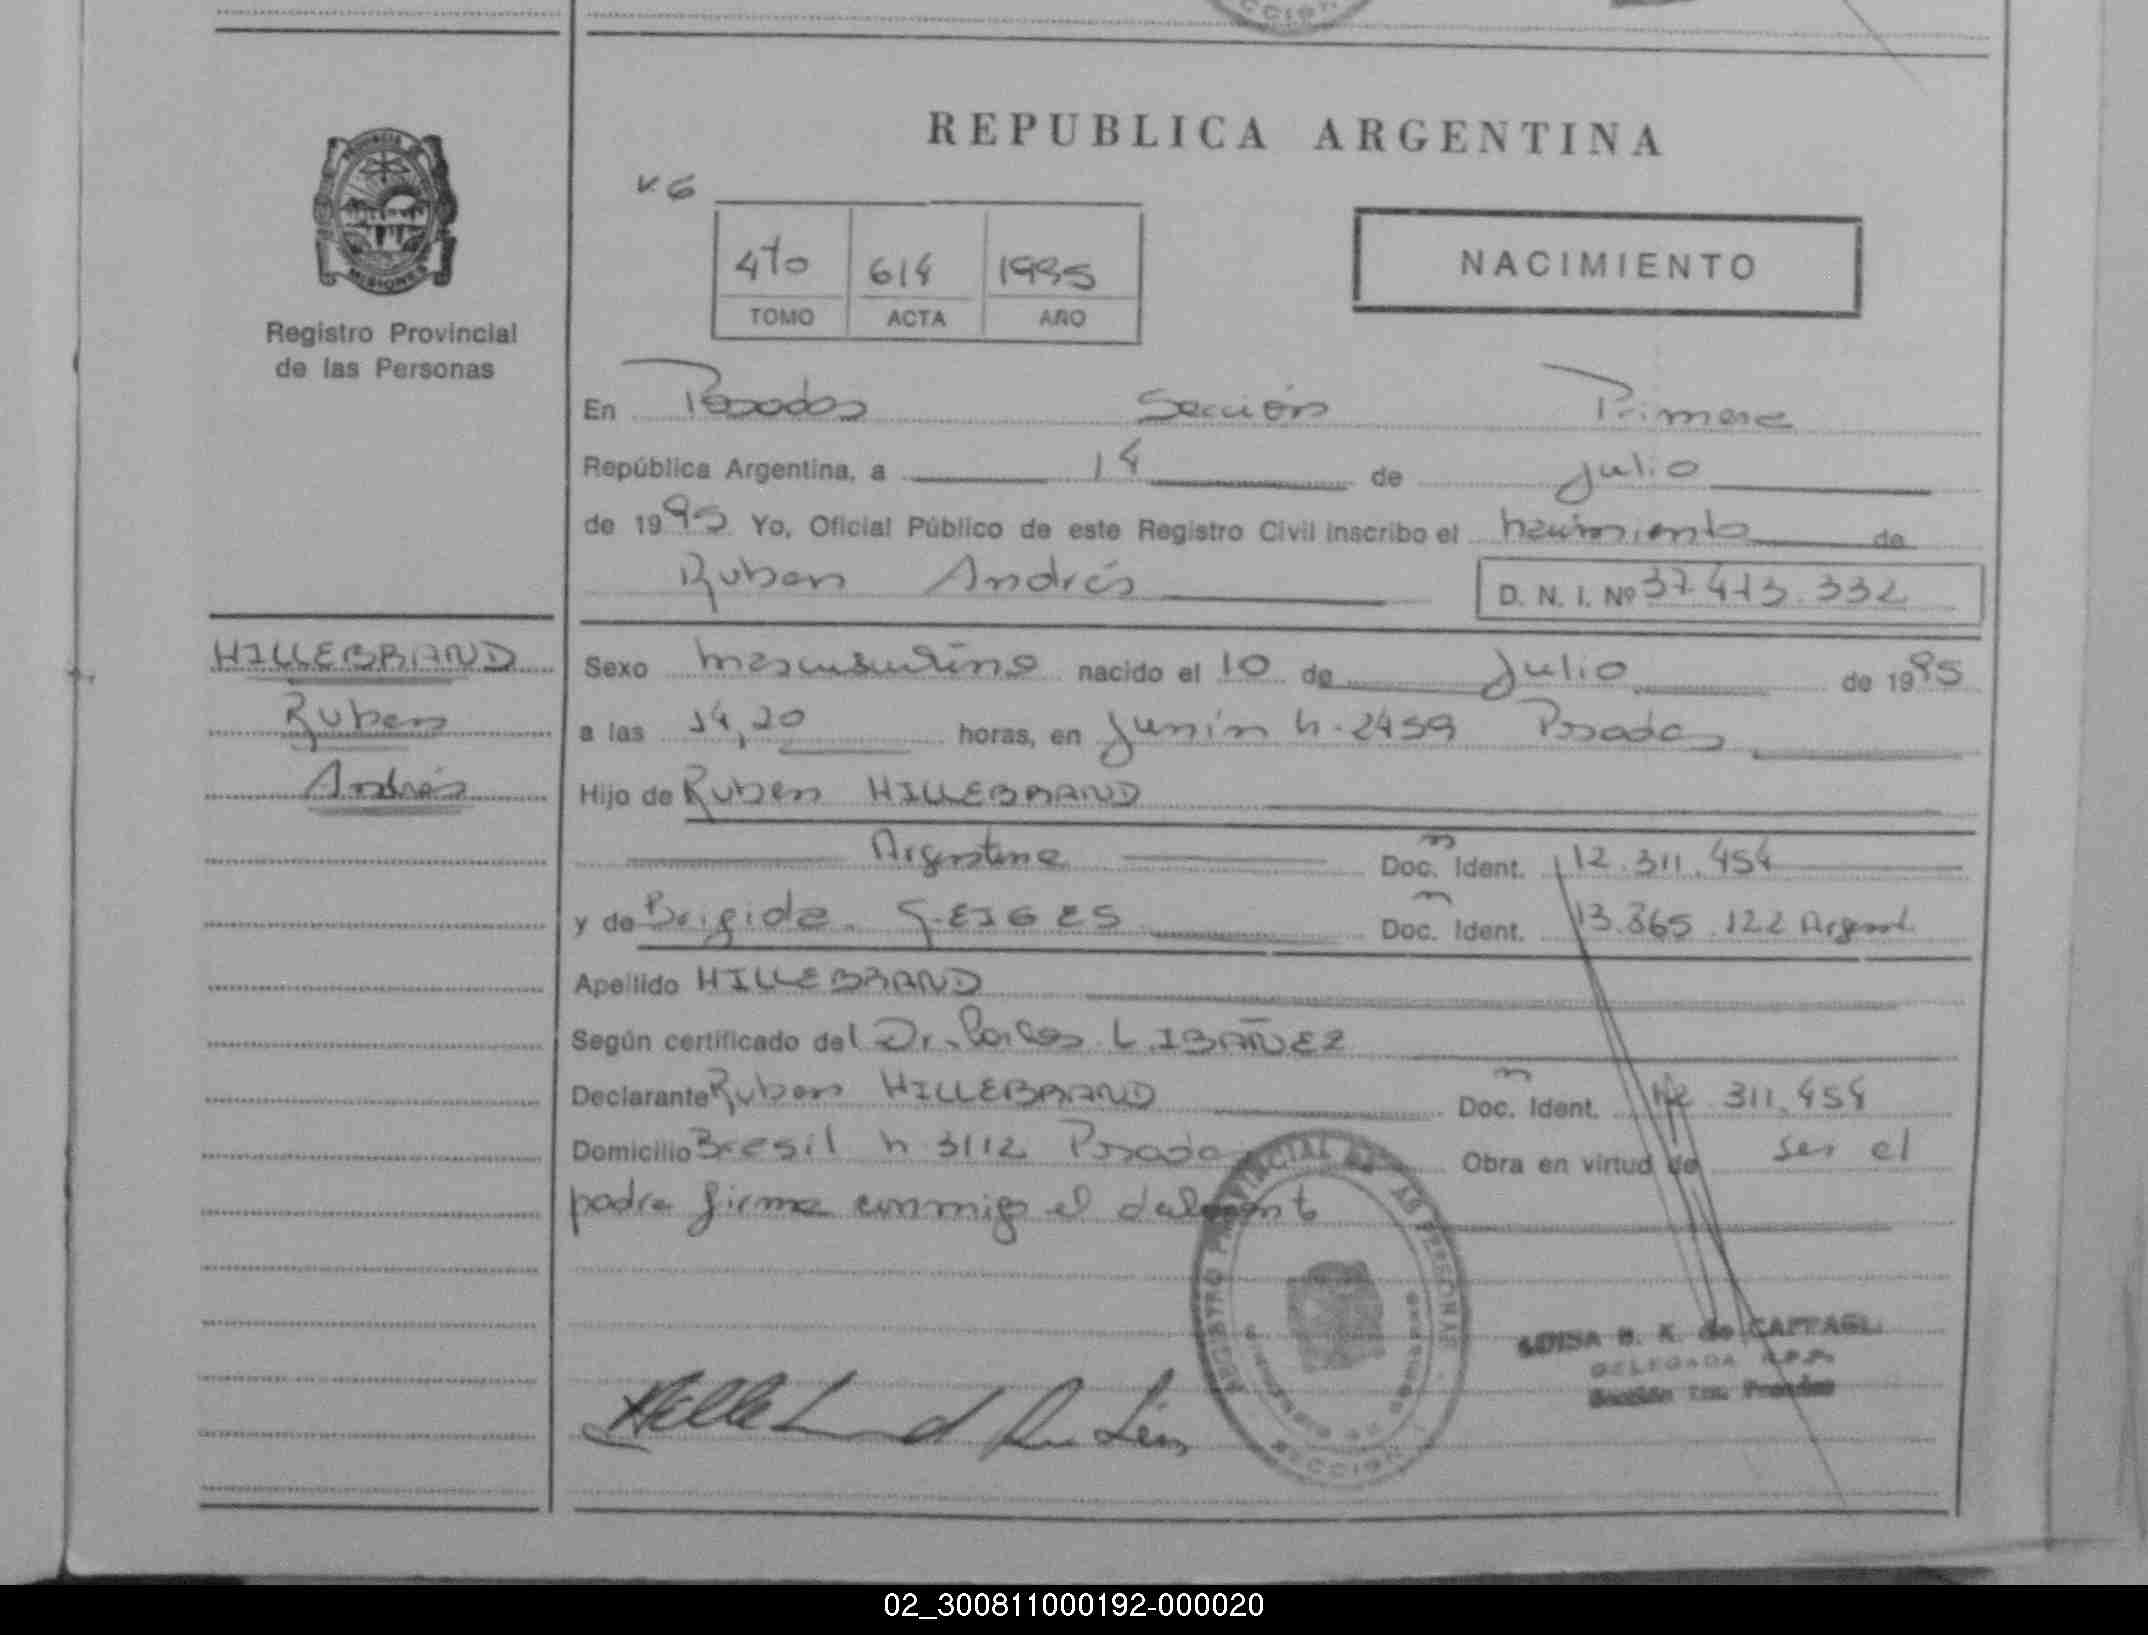 REPUBLICA ARGENTINA
v. 6
4to 614 1995
TOMO ACTA AÑO
NACIMIENTO
Registro Provincial
de las Personas
En Posadas Sección Primera
República Argentina, a 14 de Julio
de 1995 Yo, Oficial Público de este Registro Civil inscribo el nacimiento de
Ruben Andrés D. N. I. Nº 37.413.332
HILLEBRAND
Ruben
Andrés
Sexo masculino nacido el 10 de Julio de 1995
a las 14,20 horas, en Junín n. 2459 Posadas
Hijo de Ruben HILLEBRAND
Argentina Doc. Ident. 12.311.454
y de Brigida GEIGES Doc. Ident. 13.865.122 Argent.
Apellido HILLEBRAND
Según certificado del Dr. Carlos L. IBAÑEZ
Declarante Ruben HILLEBRAND Doc. Ident. 12.311.454
Domicilio Bresil n 3112 Posadas Obra en virtud de ser el
padre firma conmigo el
REGISTRO PROVINCIAL DE LAS PERSONAS
SECCION
B. K. de CAPPAGLI
DELEGADA R.P.P.
Sección 1ra. Posadas
02_300811000192-000020